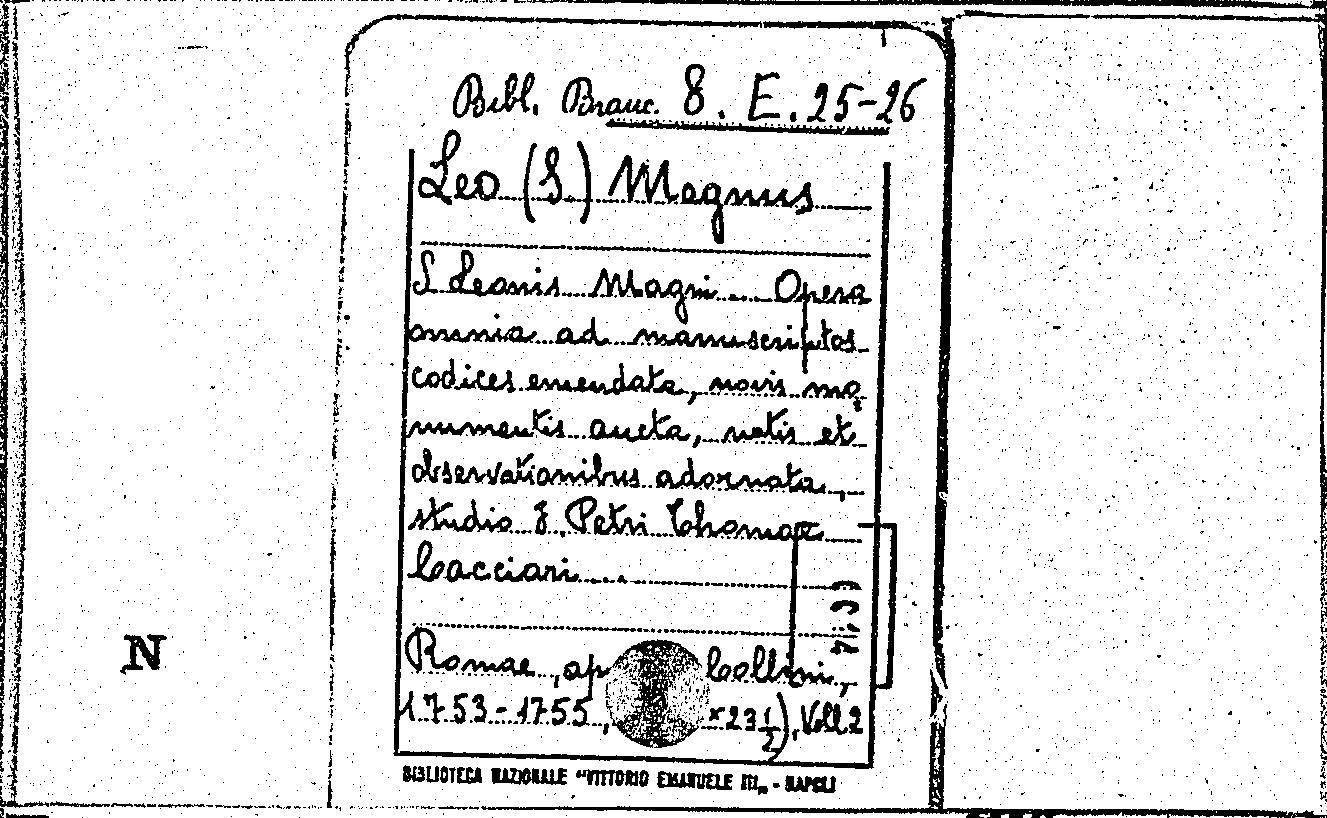 Bibl. Branc. 8. E. 25-26
Leo (S.) Magnus
S Leonis Magni... Opera
omnia ad manuscriptos
codices emendata, novis mo
numentis aucta, notis et
observationibus adornata,
studio F. Petri Thomae
Cacciari...
Romae, ap Collini,
1753-1755, x23 1/2), Voll 2
BIBLIOTECA NAZIONALE "VITTORIO EMANUELE III„ - NAPOLI
N